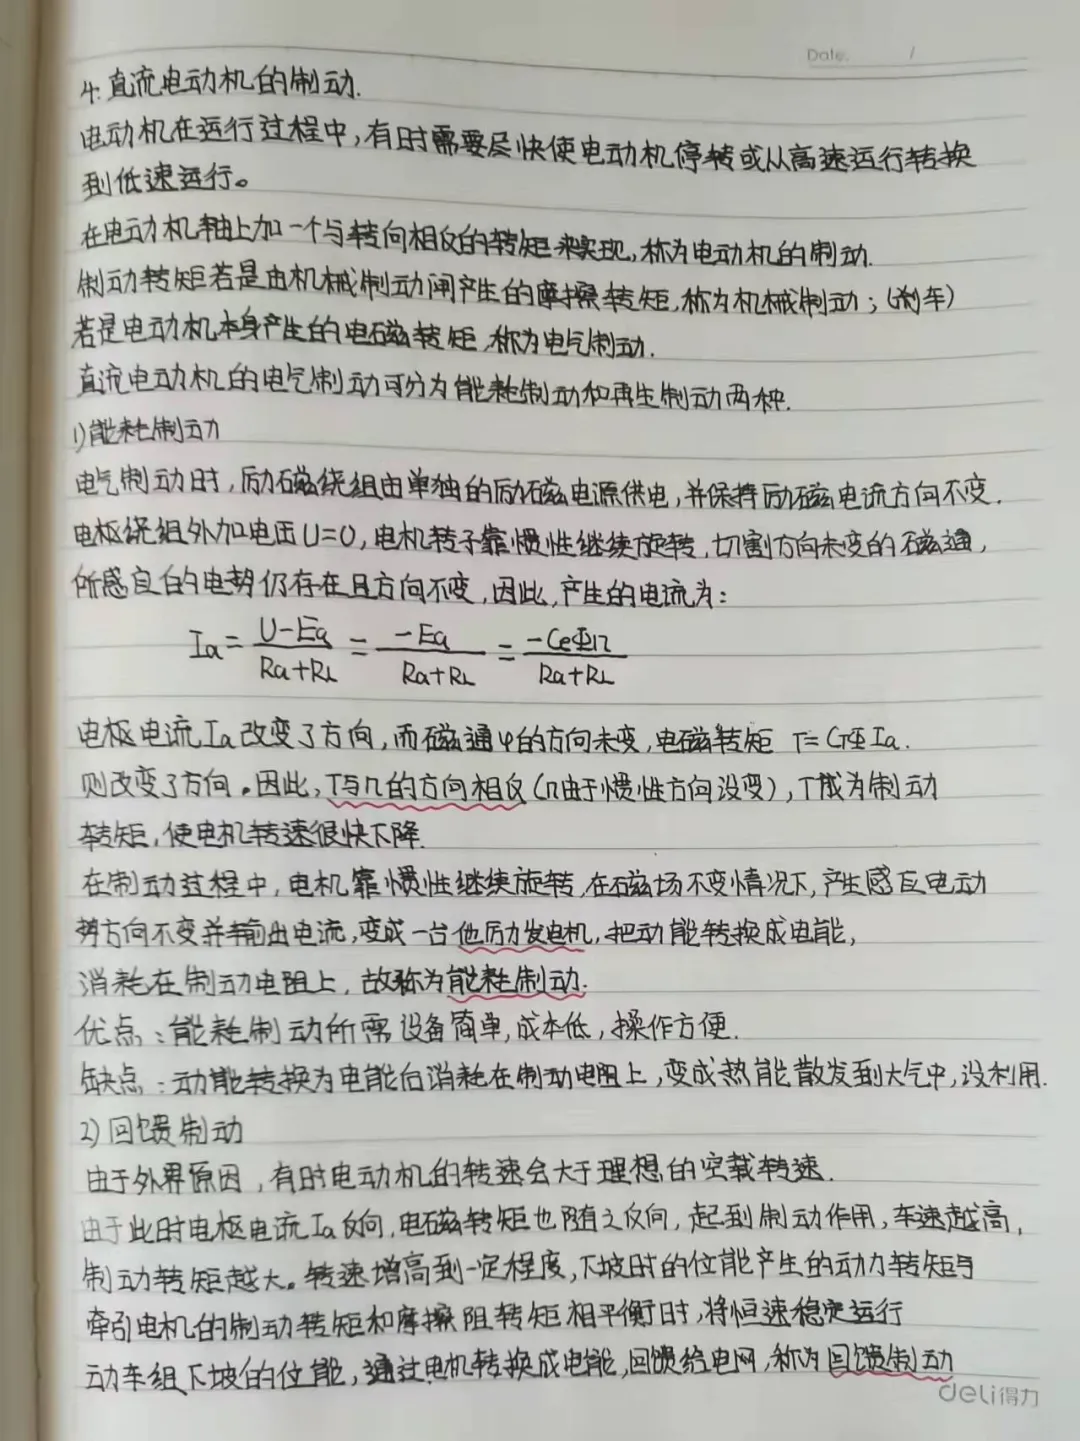 Date. /
4. 直流电动机的制动.
电动机在运行过程中,有时需要尽快使电动机停转或从高速运行转换
到低速运行。
在电动机轴上加一个与转向相反的转矩来实现,称为电动机的制动.
制动转矩若是由机械制动闸产生的摩擦转矩,称为机械制动;(刹车)
若是电动机本身产生的电磁转矩,称为电气制动.
直流电动机的电气制动可分为能耗制动和再生制动两种.
1)能耗制动
电气制动时,励磁绕组由单独的励磁电源供电,并保持励磁电流方向不变.
电枢绕组外加电压U=0,电机转子靠惯性继续旋转,切割方向未变的磁通,
所感应的电势仍存在且方向不变,因此,产生的电流为:
Ia = (U-Ea)/(Ra+RL) = (-Ea)/(Ra+RL) = (-CeΦn)/(Ra+RL)
电枢电流Ia改变了方向,而磁通φ的方向未变,电磁转矩 T=CTΦIa.
则改变了方向。因此,T与n的方向相反(n由于惯性方向没变),T成为制动
转矩,使电机转速很快下降.
在制动过程中,电机靠惯性继续旋转,在磁场不变情况下,产生感应电动
势方向不变并输出电流,变成一台他励发电机,把动能转换成电能,
消耗在制动电阻上,故称为能耗制动.
优点:能耗制动所需设备简单,成本低,操作方便.
缺点:动能转换为电能后消耗在制动电阻上,变成热能散发到大气中,没利用.
2)回馈制动
由于外界原因,有时电动机的转速会大于理想的空载转速.
由于此时电枢电流Ia反向,电磁转矩也随之反向,起到制动作用,车速越高,
制动转矩越大。转速增高到一定程度,下坡时的位能产生的动力转矩与
牵引电机的制动转矩和摩擦阻转矩相平衡时,将恒速稳定运行
动车组下坡的位能,通过电机转换成电能,回馈给电网,称为回馈制动
deli得力